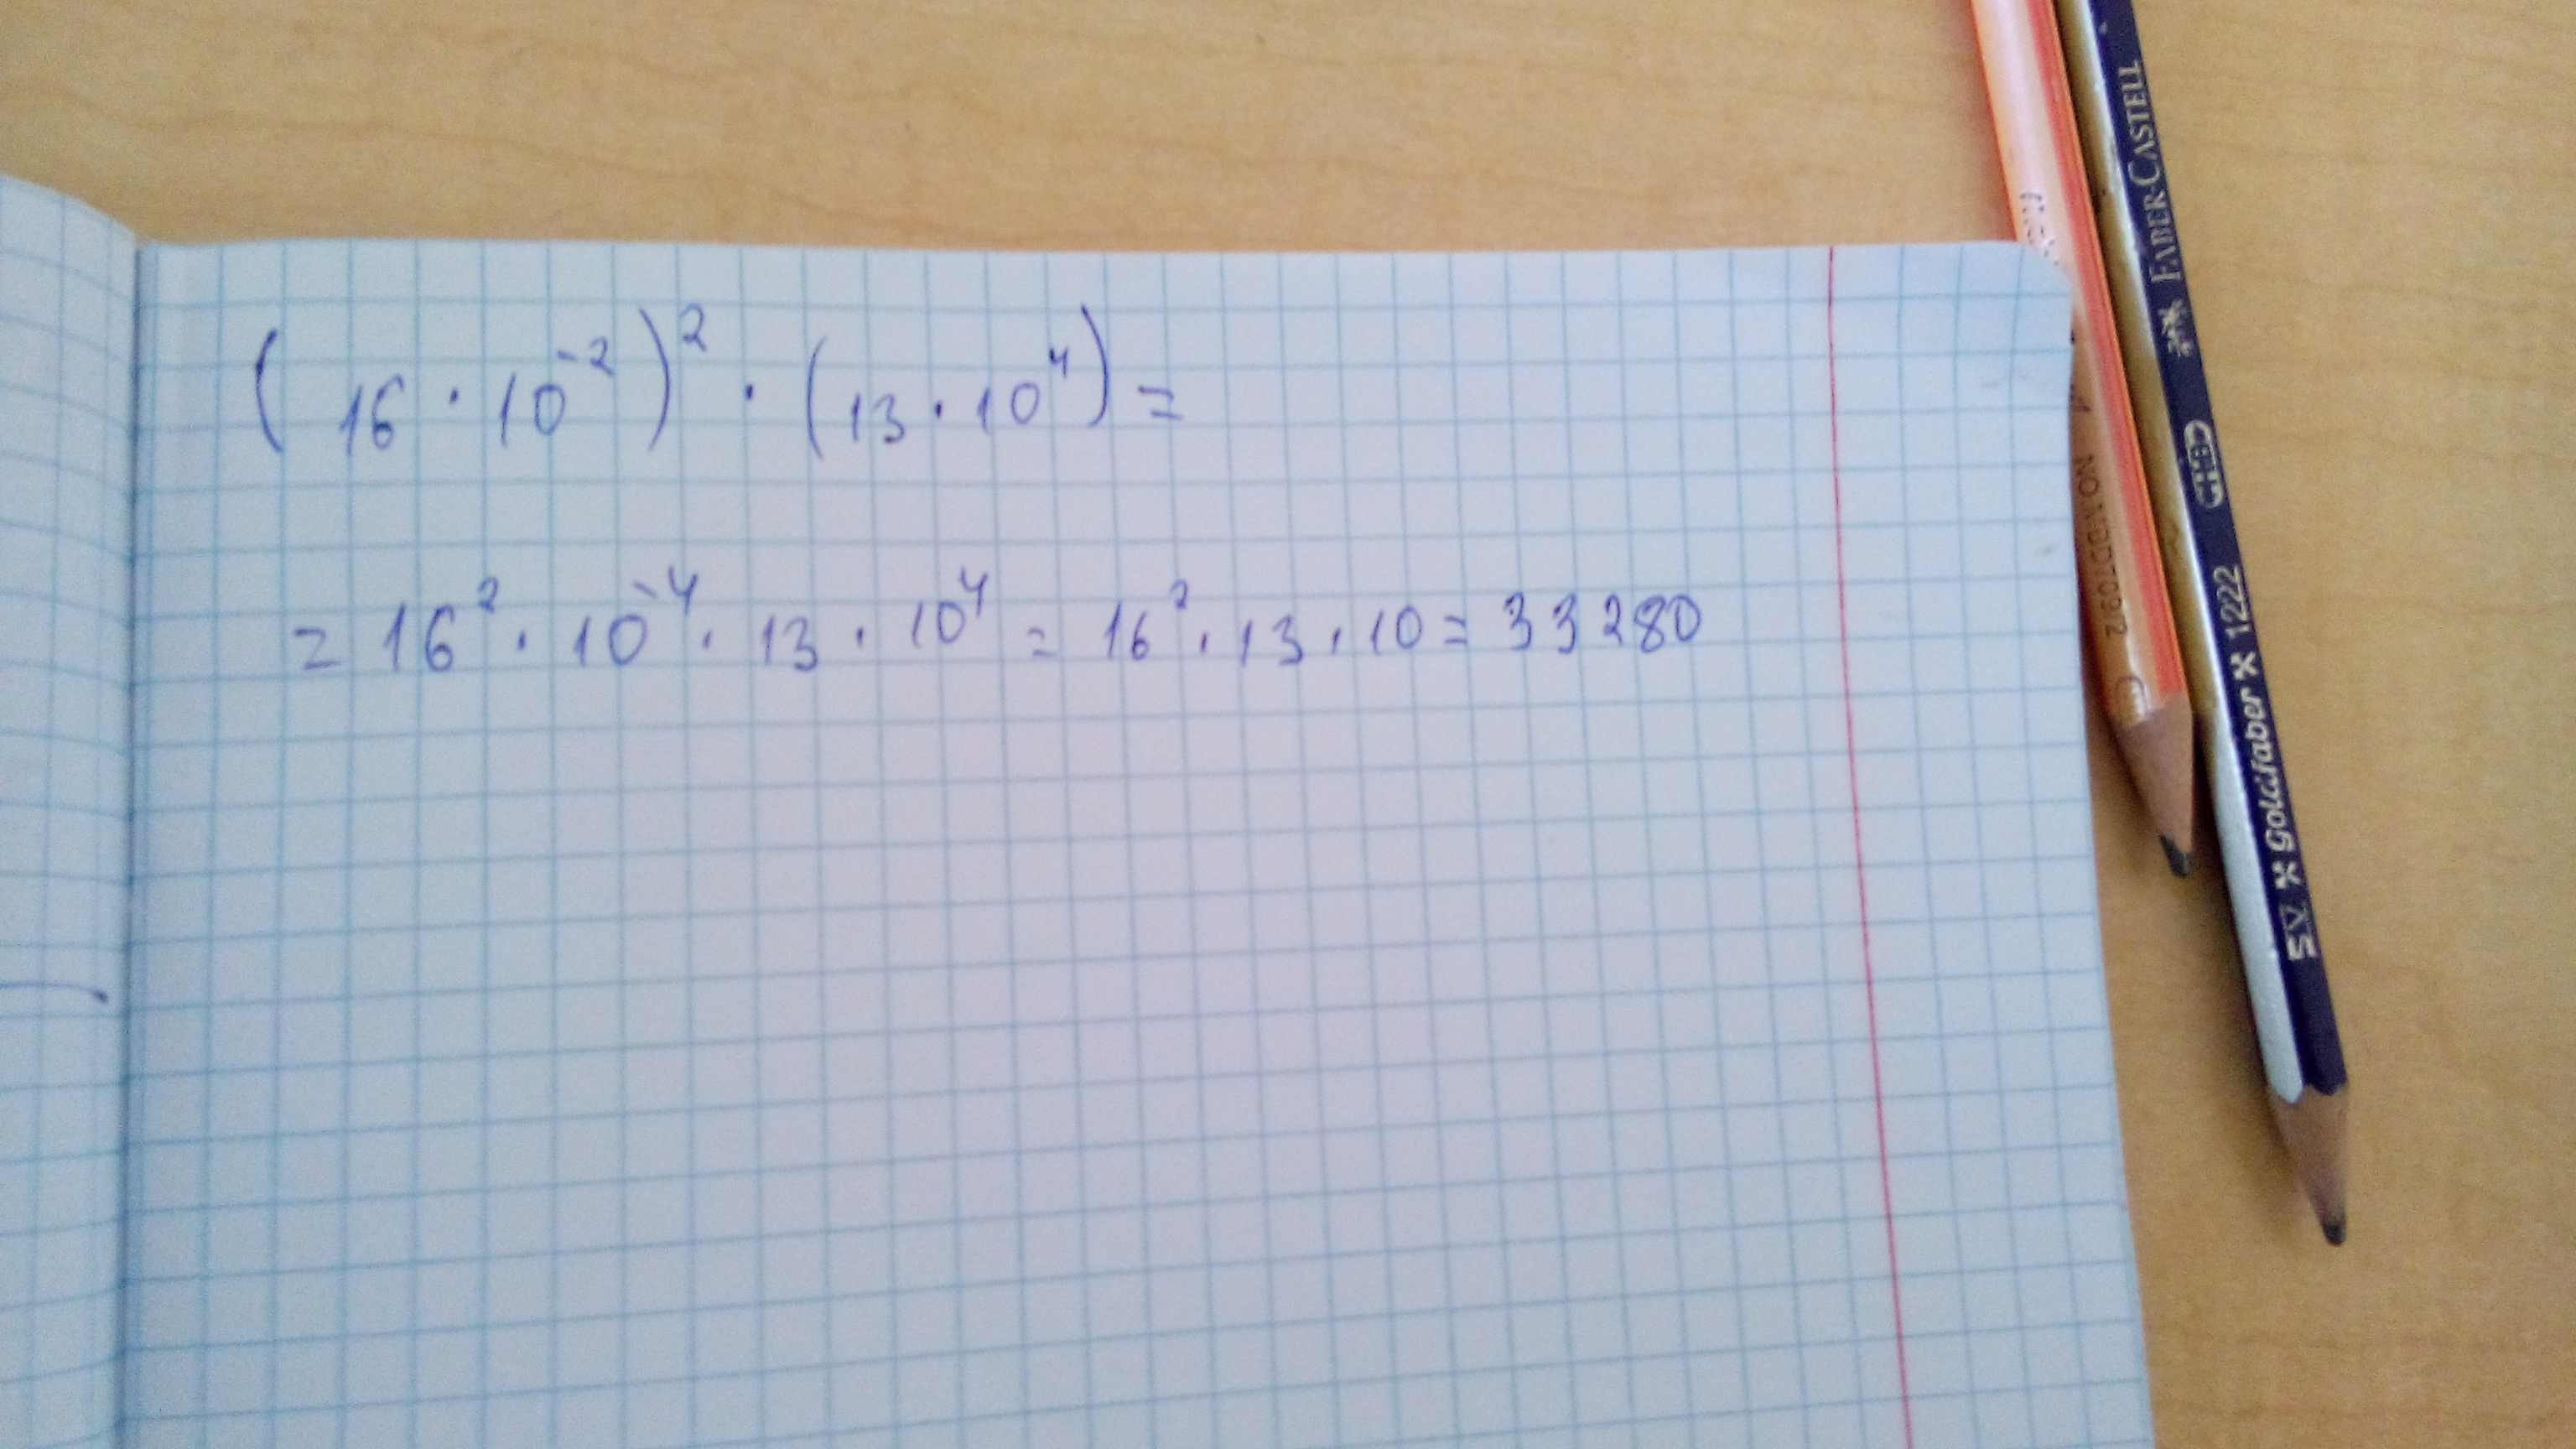 (16 · 10⁻²)² · (13 · 10⁴) =
= 16² · 10⁻⁴ · 13 · 10⁴ = 16² · 13 · 10 = 33280
FABER-CASTELL HB
SV Goldfaber 1222